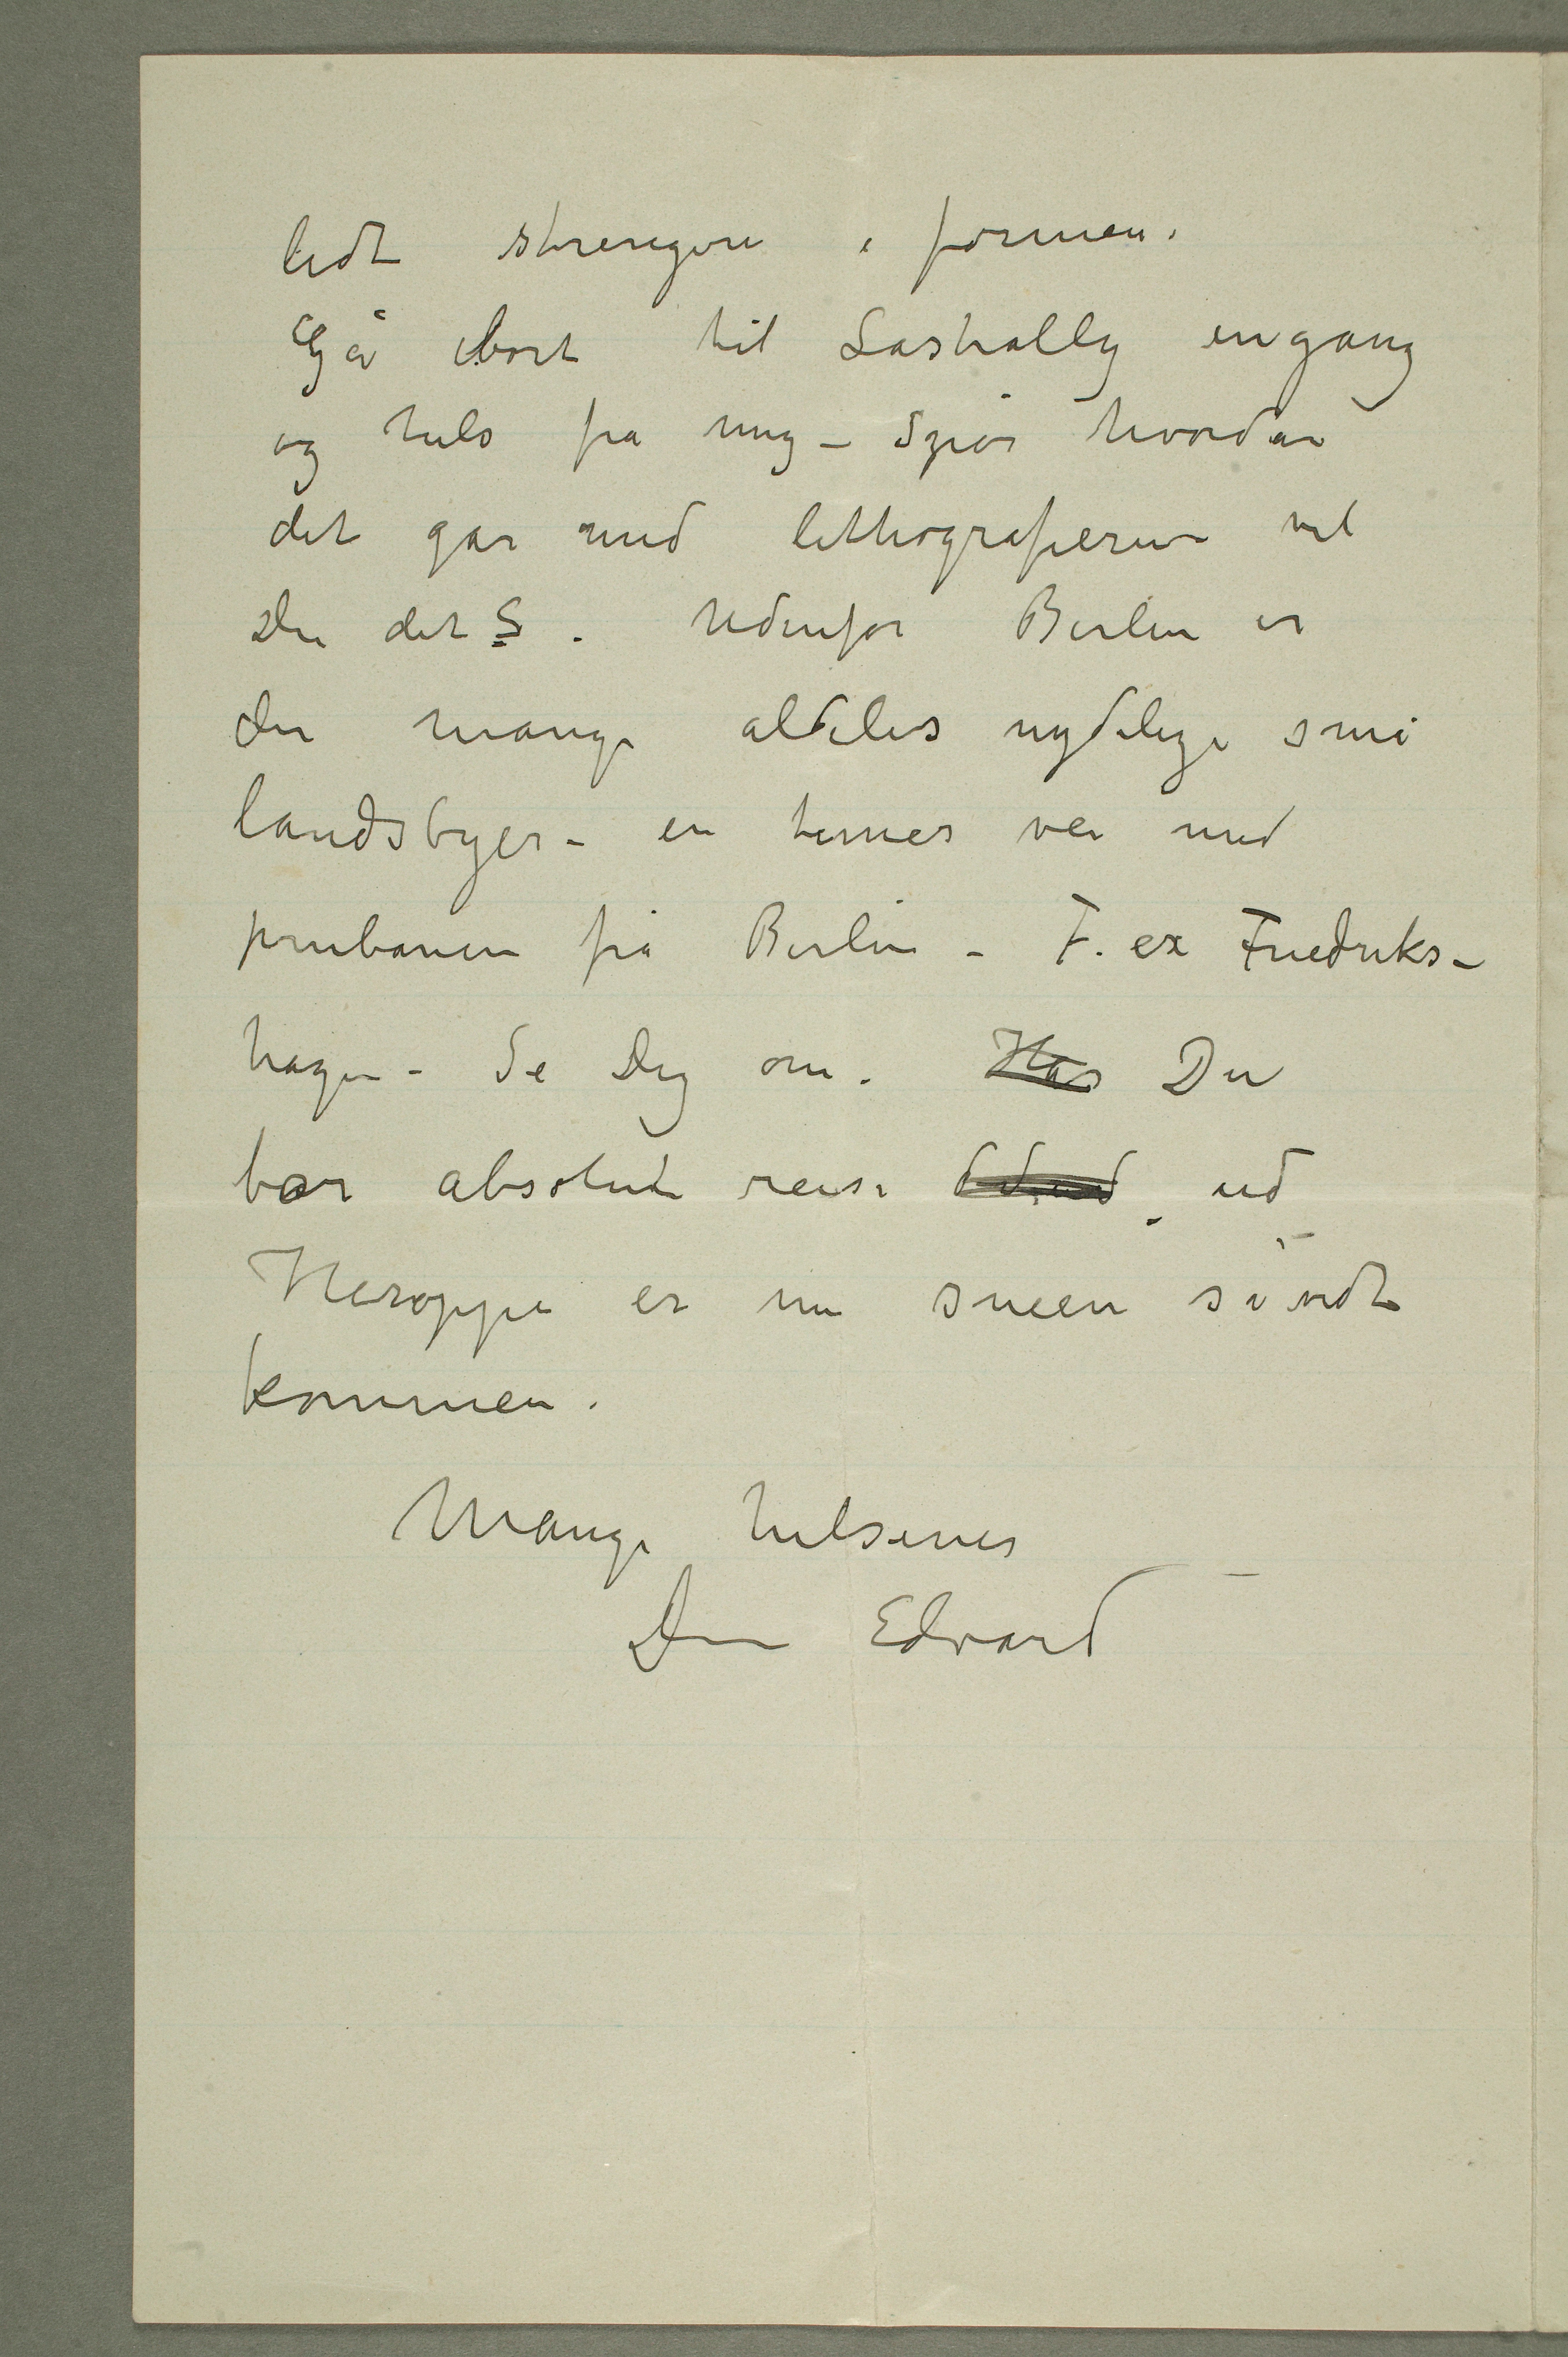 lidt strengere i formen.
Gå bort til Lastally engang
og hils fra mig – Spør hvordan
det går med lithografierne vil
Du det S. Udenfor Berlin er
der mange aldeles nydelige små
landsbyer – en times vei med
jernbanen fra Berlin – F. ex Friedriks–
hagen – Se Dig om. Har Du
bør absolut reise ud
Heroppe er nu sneen så vidt
kommen.
Mange hilsener
Din Edvard